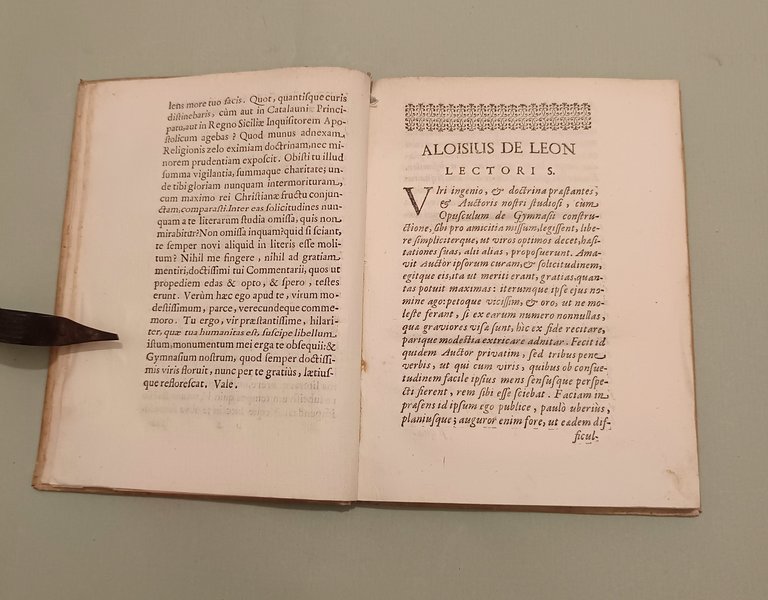 lens more tuo facis. Quot, quantisque curis
distinebaris, cùm aut in Catalauni Princi-
pato, aut in Regno Siciliæ Inquisitorem Apo-
stolicum agebas? Quod munus adnexam
Religionis zelo eximiam doctrinam, nec mi-
norem prudentiam exposcit. Obisti tu illud
summa vigilantia, summaque charitate; un-
de tibi gloriam nunquam intermorituram,
cum maximo rei Christianæ fructu conjun-
ctam, comparasti. Inter eas solicitudines nun-
quam a te literarum studia omissa, quis non
mirabitur? Non omissa inquam? quid si sciant,
te semper novi aliquid in literis esse moli-
tum? Nihil me fingere, nihil ad gratiam
mentiri, doctissimi tui Commentarii, quos ut
propediem edas & opto, & spero, testes
erunt. Verùm hæc ego apud te, virum mo-
destissimum, parce, verecundeque comme-
moro. Tu ergo, vir præstantissime, hilari-
ter, quæ tua humanitas est, suscipe libellum
istum, monumentum mei erga te obsequii: &
Gymnasium nostrum, quod semper doctissi-
mis viris floruit, nunc per te gratiùs, lætius-
que reflorescat. Vale.
ALOISIUS DE LEON
LECTORI S.
VIri ingenio, & doctrina præstantes,
& Auctoris nostri studiosi, cùm
Opusculum de Gymnasii constru-
ctione, sibi pro amicitia missum, legissent, libe-
re simpliciterque, ut viros optimos decet, hæsi-
tationes suas, alii alias, proposuerunt. Ama-
vit Auctor ipsorum curam, & solicitudinem,
egitque eis, ita ut meriti erant, gratias, quan-
tas potuit maximas: iterumque ipse ejus no-
mine ago: petoque vicissim, & oro, ut ne mo-
leste ferant, si ex earum numero nonnullas,
quæ graviores visæ sunt, hic ex fide recitare,
parique modestia extricare adnitar. Fecit id
quidem Auctor privatim, sed tribus pene
verbis, ut qui cum viris, quibus ob consue-
tudinem facile ipsius mens sensusque perspe-
cti fierent, rem sibi esse sciebat. Faciam in
præsens id ipsum ego publice, paulò uberius,
planiusque; auguror enim fore, ut eædem dif-
ficul-